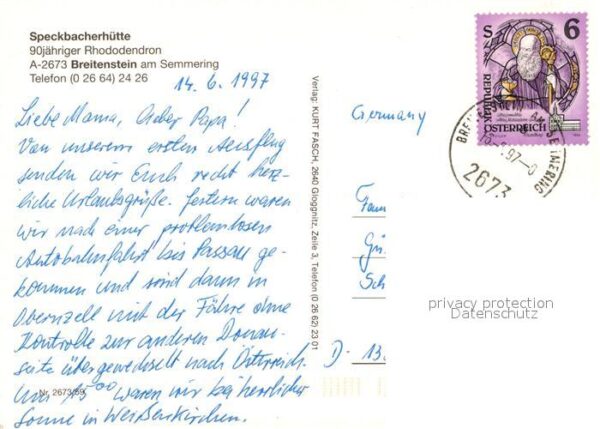 Speckbacherhütte
90jähriger Rhododendron
A-2673 Breitenstein am Semmering
Telefon (0 26 64) 24 26
14.6.1997
Liebe Mama, lieber Papa!
Von unserem ersten Ausflug
senden wir Euch recht herz-
liche Urlaubsgrüße. Gestern waren
wir nach einer problemlosen
Autobahnfahrt bis Passau ge-
kommen und sind dann in
Obernzell mit der Fähre ohne
Kontrolle zur anderen Donau-
seite übergewechselt nach Österreich.
Um 15 00 waren wir bei herrlicher
Sonne in Weißenkirchen.
Nr. 2673/89
Verlag: KURT FASCH, 2640 Gloggnitz, Zeile 3, Telefon (0 26 62) 23 01
Germany
Fam
Gü
Sch
D- 13
S 6
REPUBLIK
ÖSTERREICH
97-0
2673
privacy protection
Datenschutz